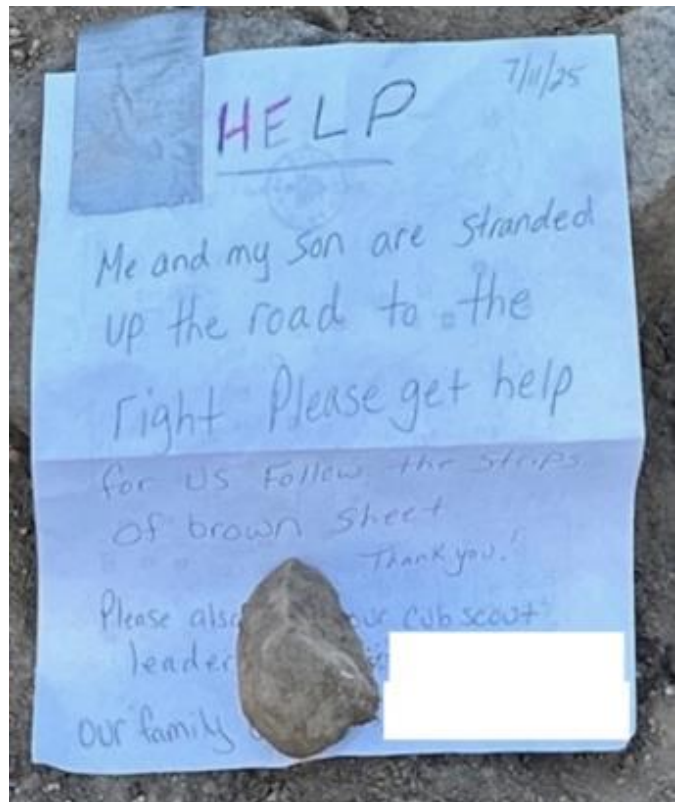 7/11/25
HELP
Me and my son are stranded
up the road to the
right Please get help
for us Follow the strips
of brown sheet
Thank you!
Please also our cub scout
leader
our family